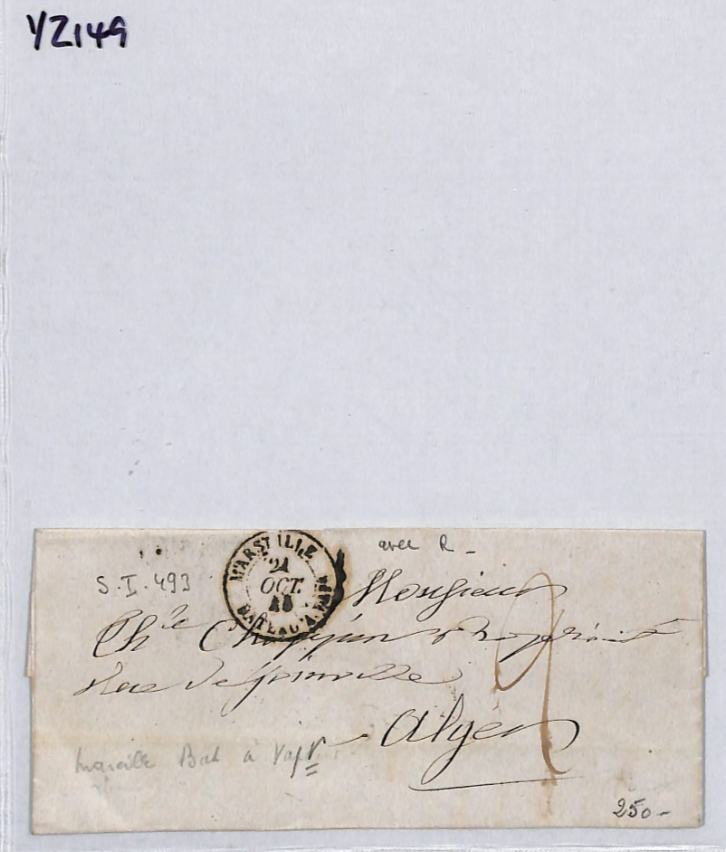 YZ149
avec R -
MARSEILLE
21
OCT.
BATEAU À VAP.
S.I.493
Monsieur
Ch.le
Rue de Joinville
Alger
2
Marseille Bat à Vapr
250-